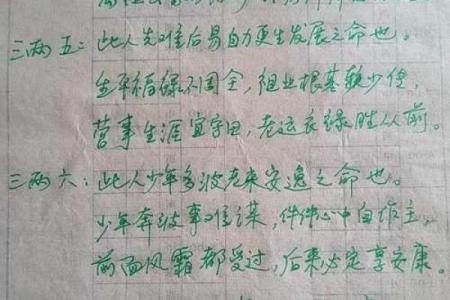 三两五：此人先难后易自力更生发展之命也。
生平福禄不周全，祖业根基觉少但，
营事生涯宜守旧，老运衣禄胜从前。
三两六：此人少年多波老来安逸之命也。
少年奔波事难谋，件件心中自作主，
前面风霜都受过，后来必定享安康。